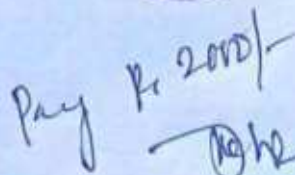 Pay Rs 2000/-